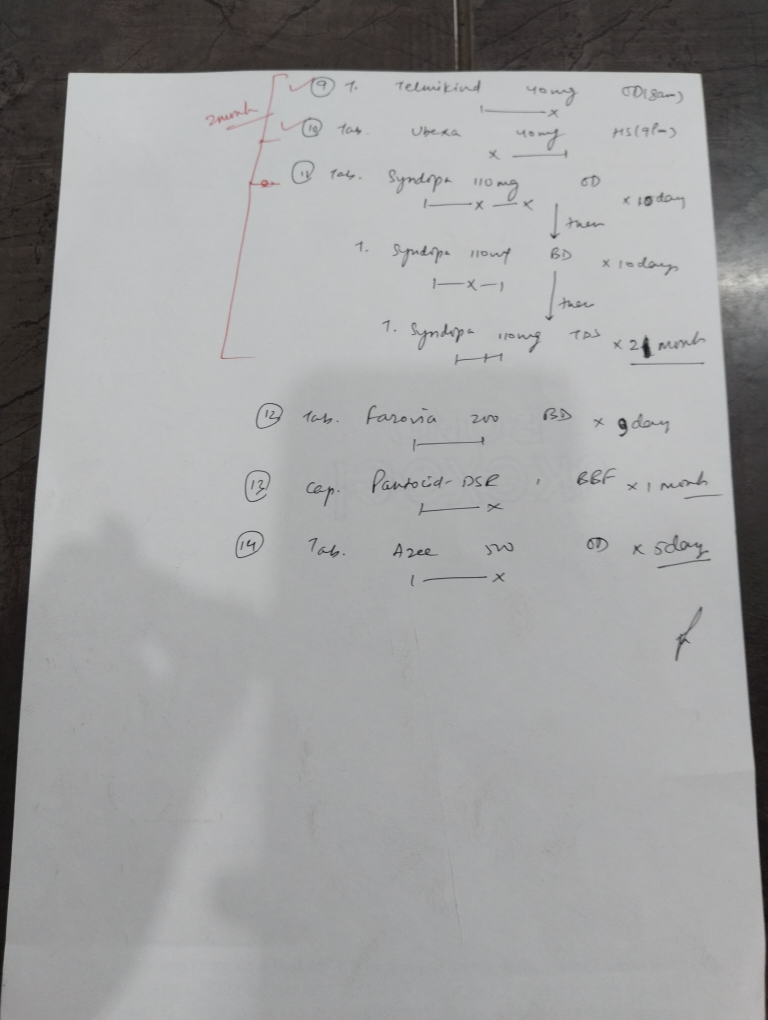 2 month
⑨ T. Telmikind 40mg OD(8am)
|——x
⑩ Tab. Ubexa 40mg HS(9Pm)
x ——|
⑪ Tab. Syndopa 110mg OD x 10 day
|——x —x
↓ then
T. Syndopa 110mg BD x 10 days
|—x—|
↓ then
T. Syndopa 110mg TDS x 21 month
|—|—|
⑫ Tab. Farovia 200 BD x 9 day
|——|
⑬ Cap. Pantocid-DSR , BBF x 1 month
|——x
⑭ Tab. Azee 500 OD x 5day
|——x